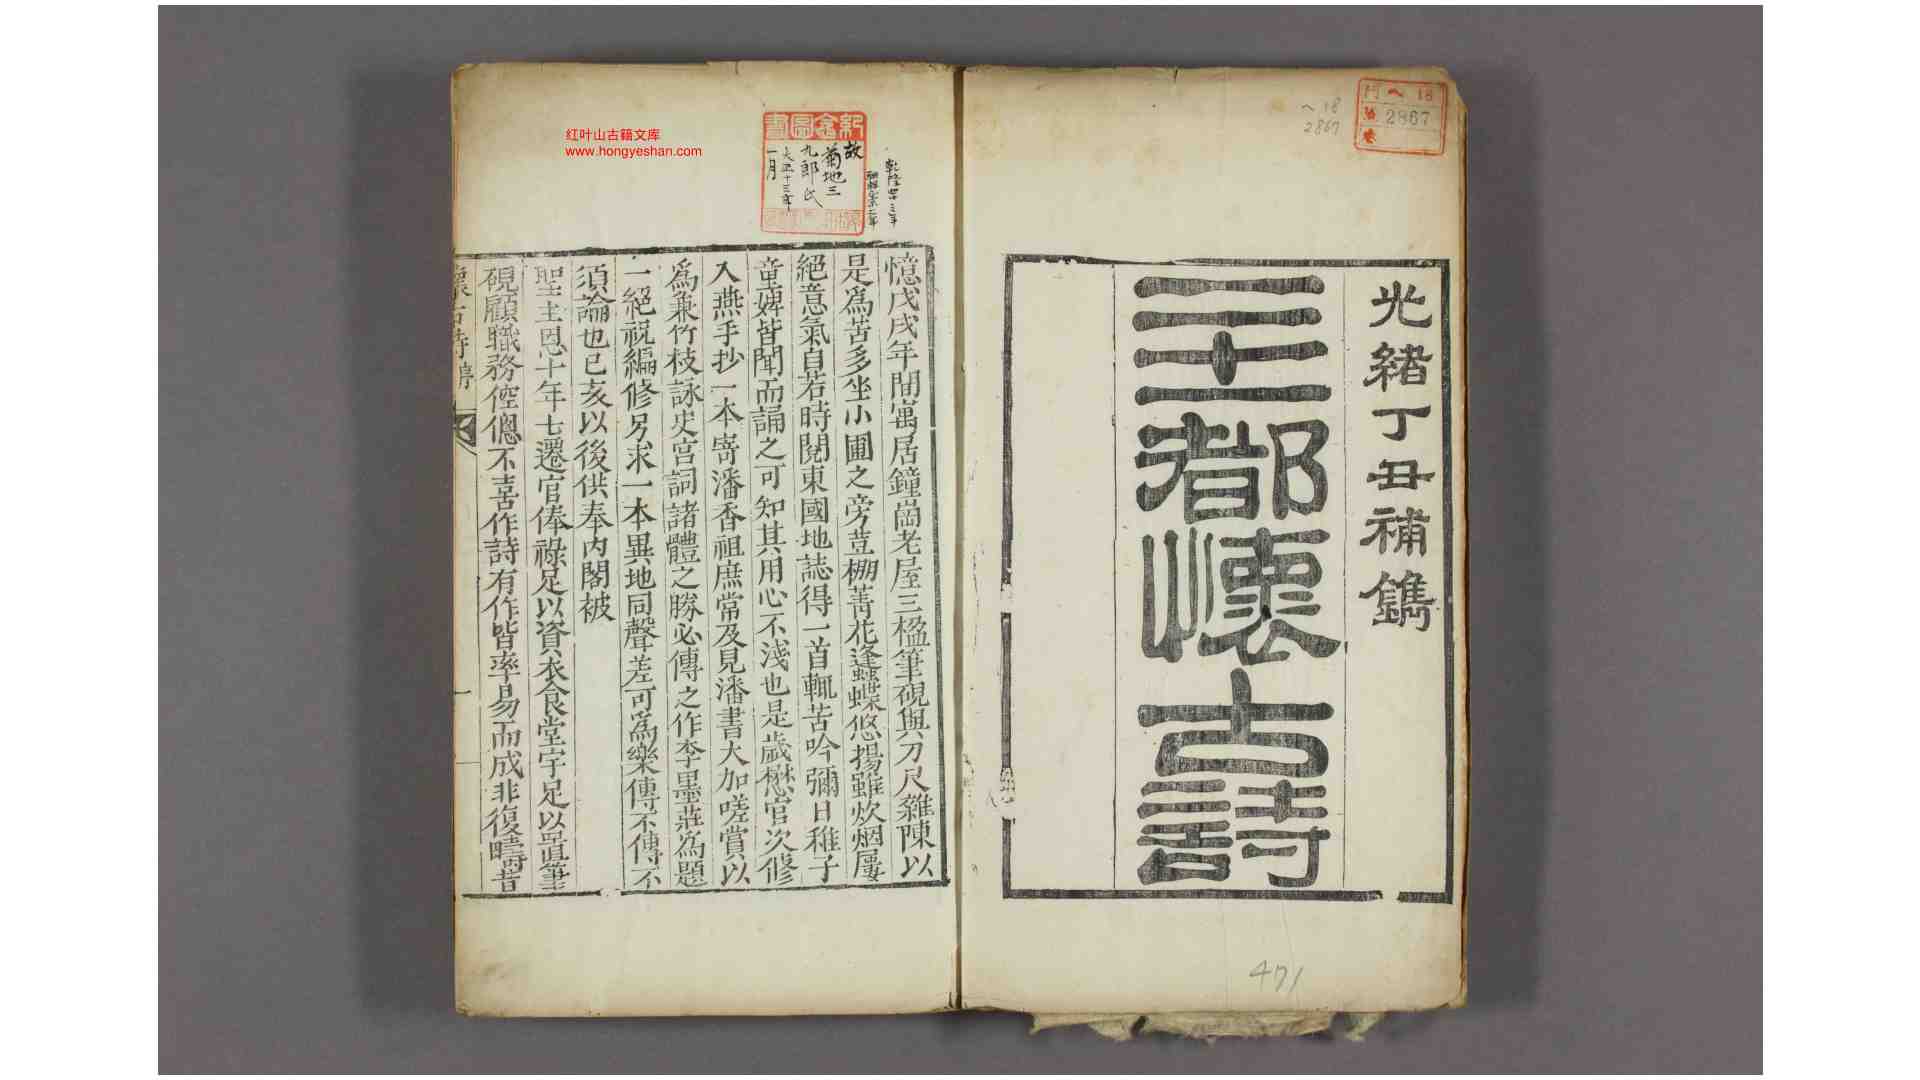 門 ヘ 18
號 2867
卷
ヘ 18
2867
光緒丁丑補鐫
二十一都懷古詩
471
红叶山古籍文库
www.hongyeshan.com
紀念圖書
故
菊地三
九郎氏
大正十三年
一月
憶戊戌年間寓居鐘崗老屋三楹筆硯與刀尺雜陳以
是爲苦多坐小圃之旁荳棚菁花逢蝶悠揚雖炊烟屢
絕意氣自若時閱東國地誌得一首輒苦吟彌日稚子
童婢皆聞而誦之可知其用心不淺也是歲懋官次修
入燕手抄一本寄潘香祖庶常及見潘書大加嗟賞以
爲兼竹枝詠史宮詞諸體之勝必傳之作李墨莊爲題
一絕祝編修另求一本異地同聲差可爲樂傳不傳不
須論也已亥以後供奉內閣被
聖主恩十年七遷官俸祿足以資衣食堂宇足以置筆
硯顧職務倥傯不喜作詩有作皆率易而成非復疇昔
懷古詩